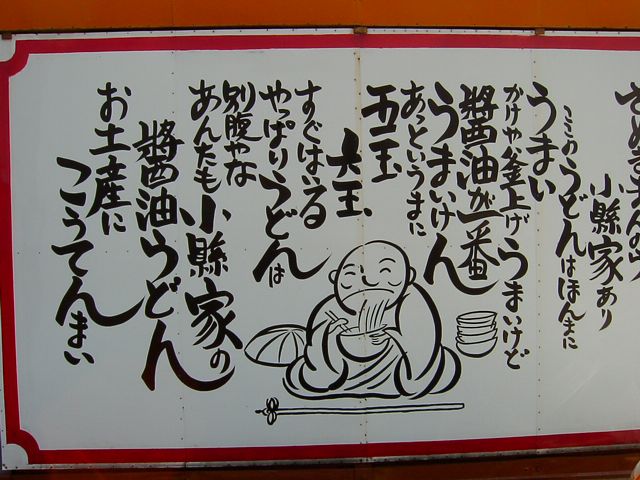 小縣家あり
ここのうどんはほんまに
うまい
かけや釜上げうまいけど
醬油が一番
うまいけん
あっというまに
五玉、
六玉、
すぐはいる
やっぱりうどんは
別腹やな
あんたも小縣家の
醬油うどん
お土産に
こうてんまい